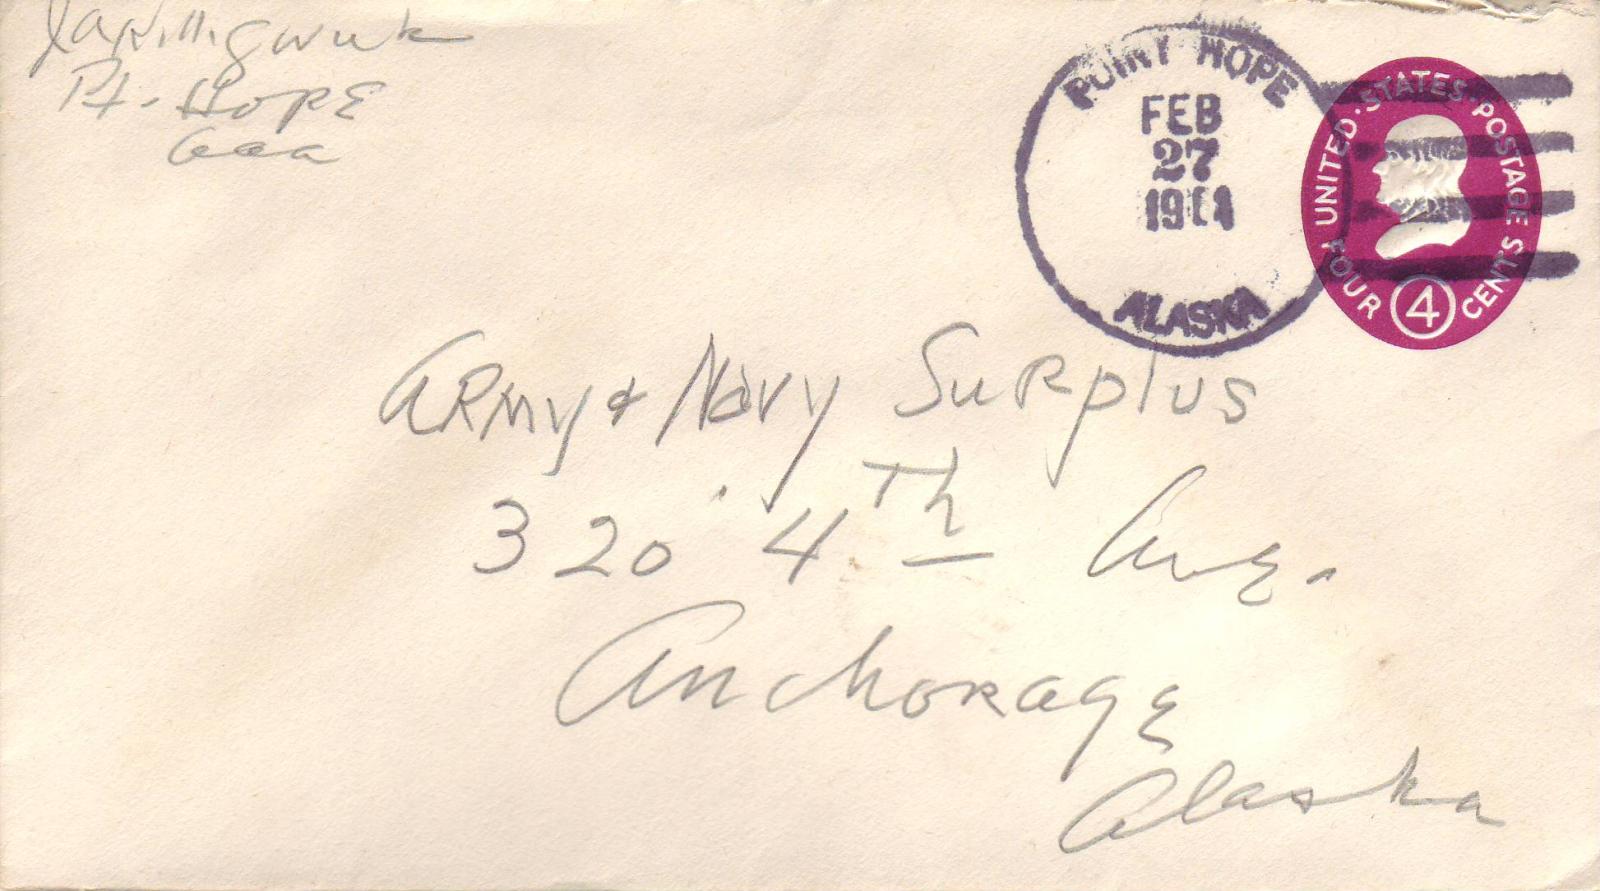 Pt. Hope
POINT HOPE
FEB
27
ALASKA
UNITED · STATES · POSTAGE
FOUR 4 CENTS
Army & Navy Surplus
320 4Th Ave.
Anchorage
Alaska